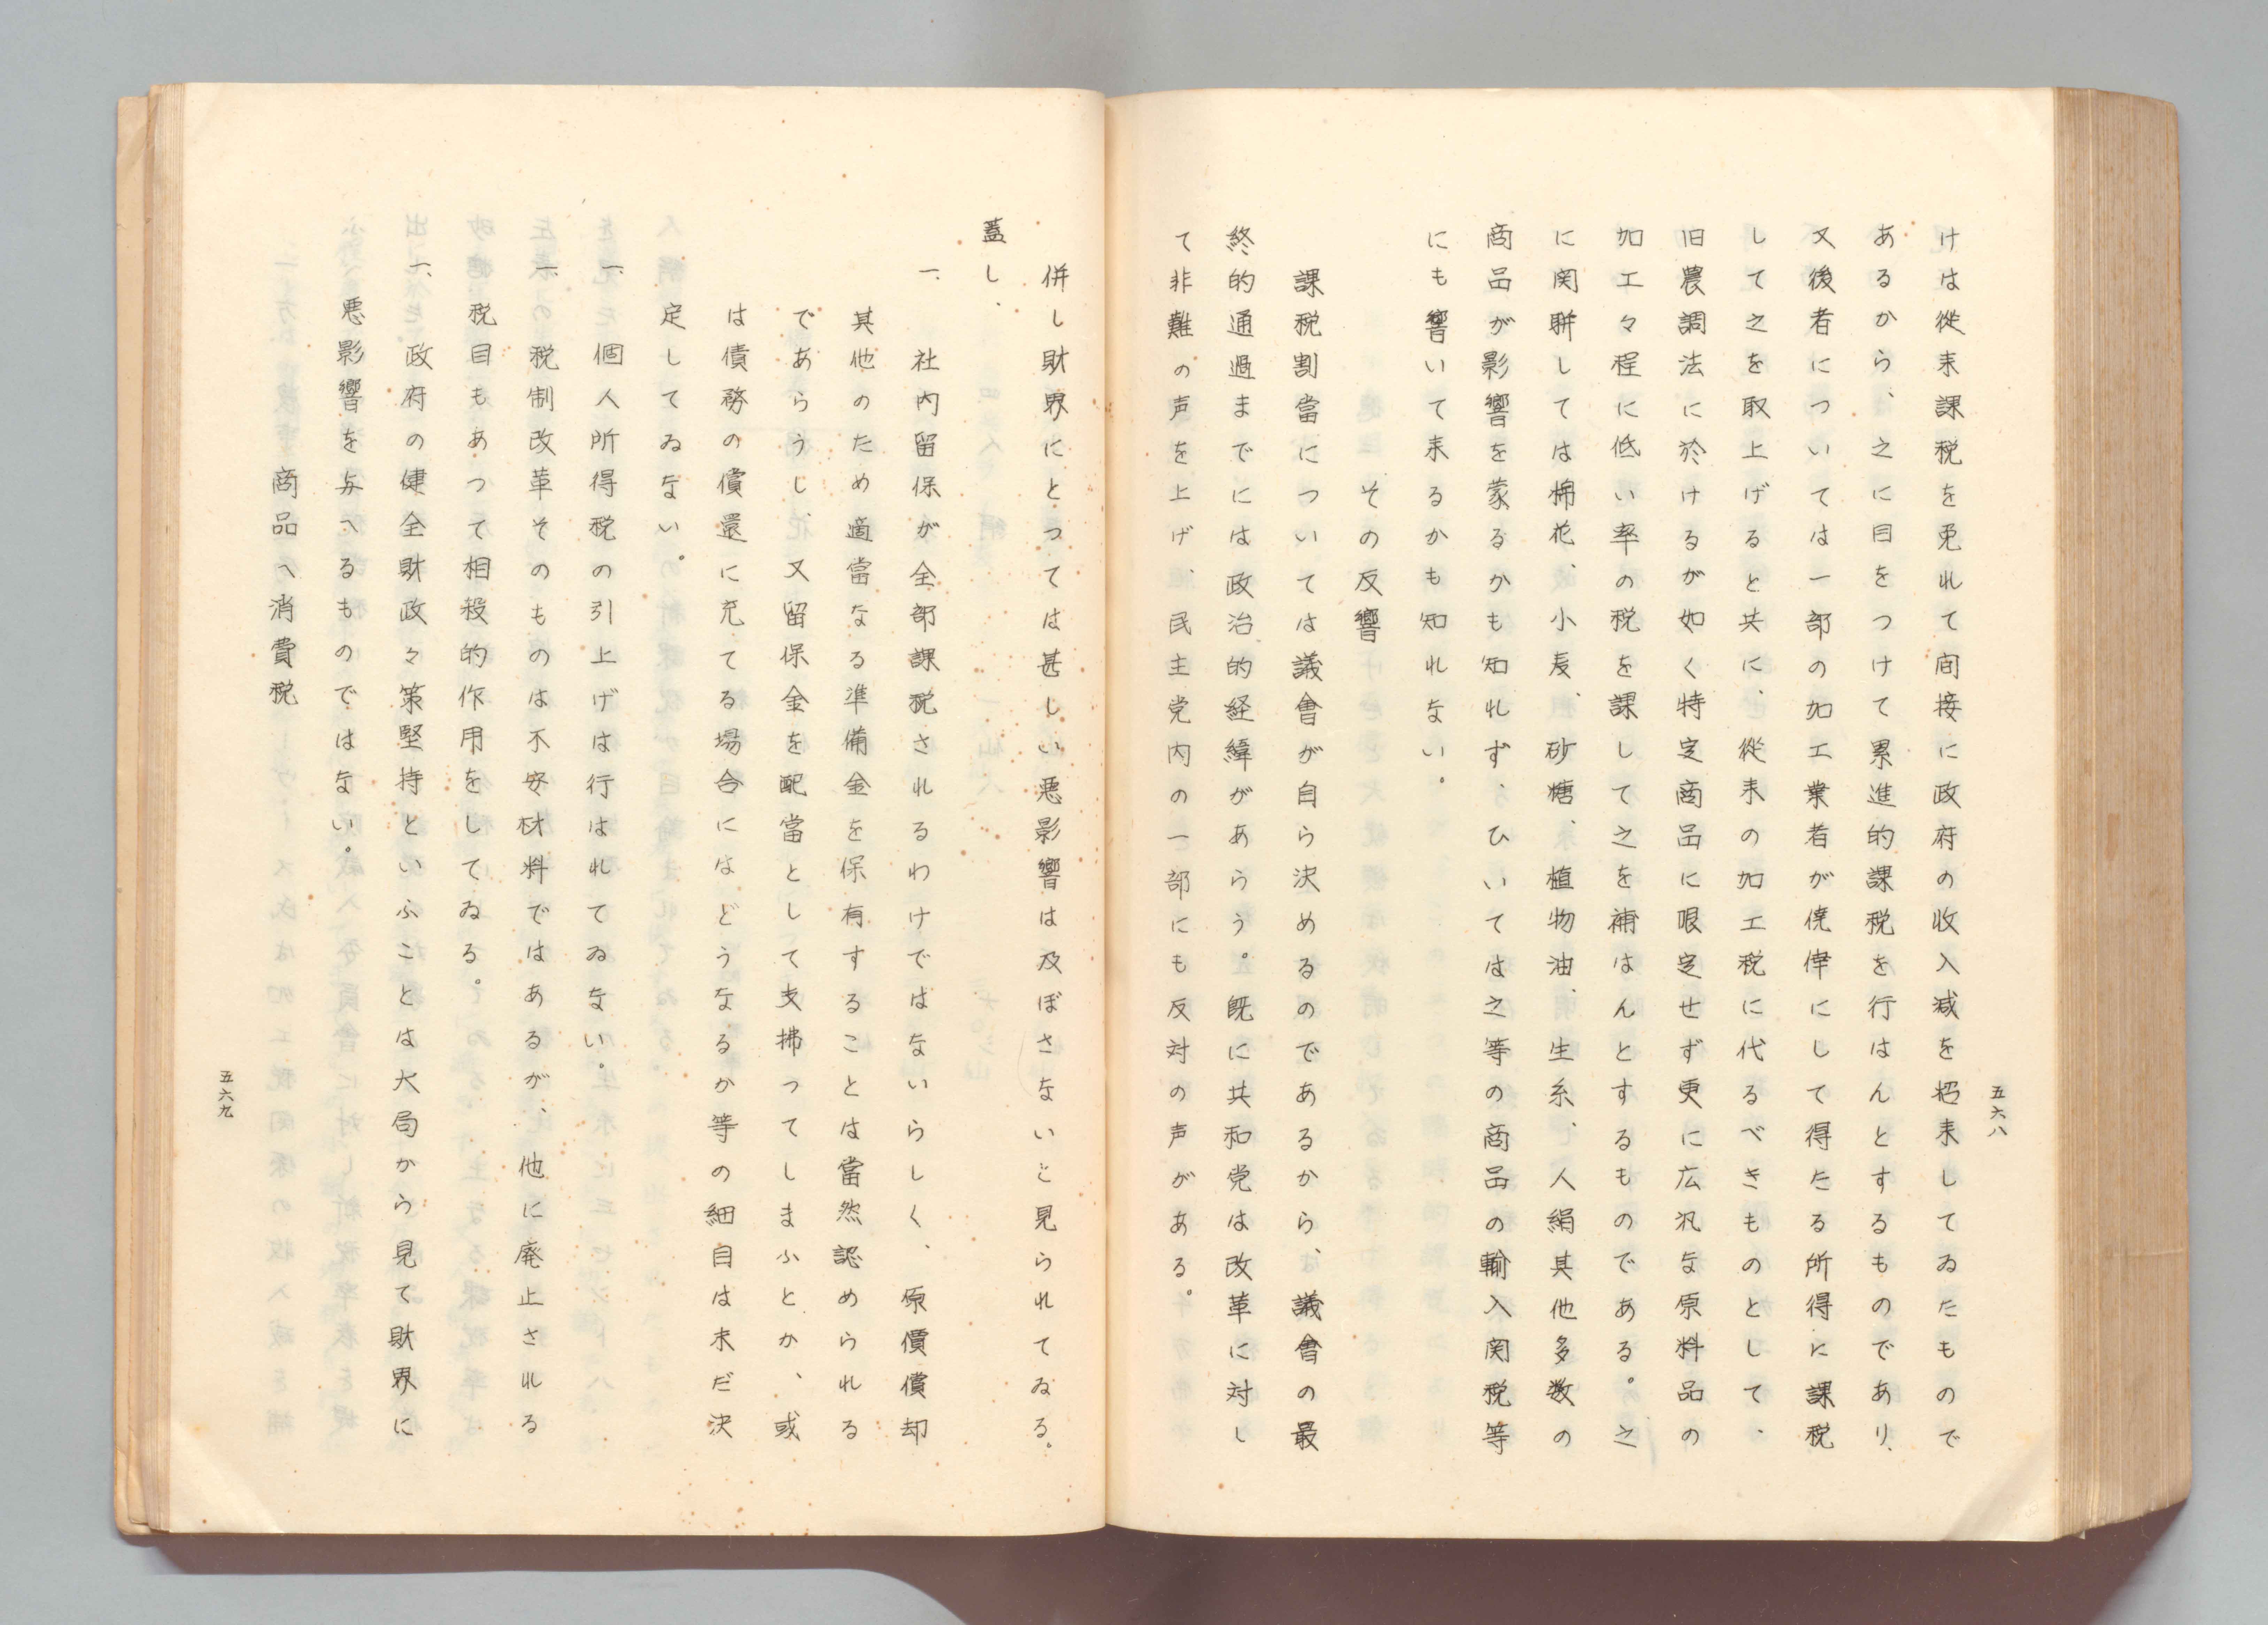 五六八
けは從来課税を免れて間接に政府の收入減を招来してゐたもので
あるから、之に目をつけて累進的課税を行はんとするものであり、
又後者については一部の加工業者が僥倖にして得たる所得に課税
して之を取上げると共に、從来の加工税に代るべきものとして、
旧農調法に於けるが如く特定商品に限定せず更に広汎な原料品の
加工々程に低い率の税を課して之を補はんとするものである。之
に関聯しては棉花、小麦、砂糖、植物油、生糸、人絹其他多数の
商品が影響を蒙るかも知れず、ひいては之等の商品の輸入関税等
にも響いて来るかも知れない。
その反響
課税割當については議會が自ら決めるのであるから、議會の最
終的通過までには政治的経緯があらう。既に共和党は改革に対し
て非難の声を上げ、民主党内の一部にも反対の声がある。
併し財界にとつては甚しい悪影響は及ぼさないと見られてゐる。
蓋し、
一、社内留保が全部課税されるわけではないらしく、原價償却
其他のため適當なる準備金を保有することは當然認められる
であらうし、又留保金を配當として支拂つてしまふとか、或
は債務の償還に充てる場合にはどうなるか等の細目は未だ決
定してゐない。
一、個人所得税の引上げは行はれてゐない。
一、税制改革そのものは不安材料ではあるが、他に廃止される
税目もあつて相殺的作用をしてゐる。
一、政府の健全財政々策堅持といふことは大局から見て財界に
悪影響を与へるものではない。
商品へ消費税
五六九